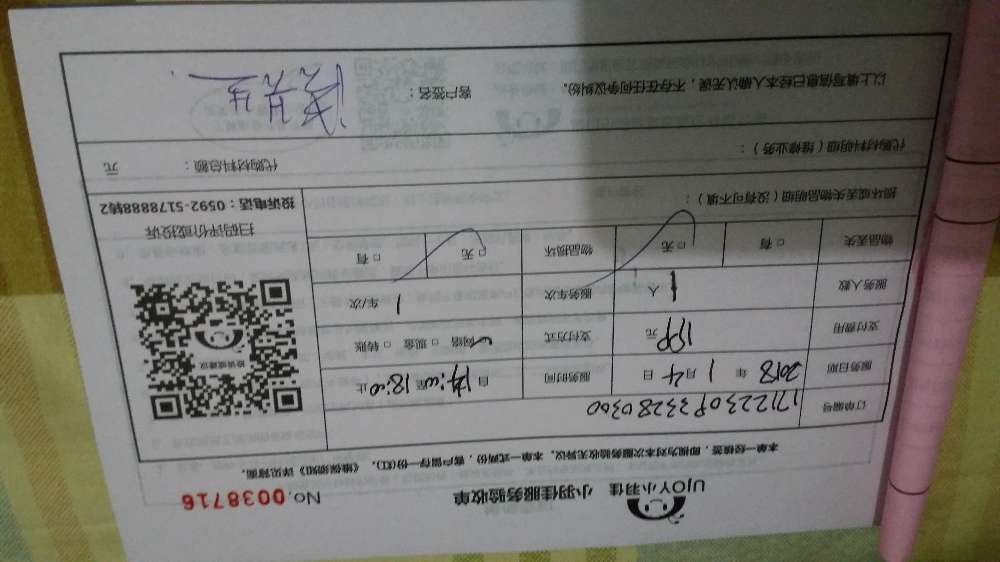 UJOY小羽佳 小羽佳服务验收单 No.0038716
本单一经填签,即视为对本次服务验收无异议。本单一式两份,客户留存一份(红)。《维保须知》详见背面。
订单编号 1712230933280300
服务日期 2018 年 1 月 4 日 服务时间 自 14:00 至 18:00 止
支付费用 199 元 支付方式 网络 □ 现金 □ 转账
服务人数 1 人 服务车次 1 车/次
物品丢失 □ 有 □ 无 物品损坏 □ 无 □ 有
投诉或建议
扫码评价或投诉
投诉电话:0592-5178888转2
损坏或丢失物品明细(没有可不填):
代购材料明细(维修业务): 代购材料总额: 元
以上填写信息已经本人确认无误,不存在任何争议纠纷。 客户签名: